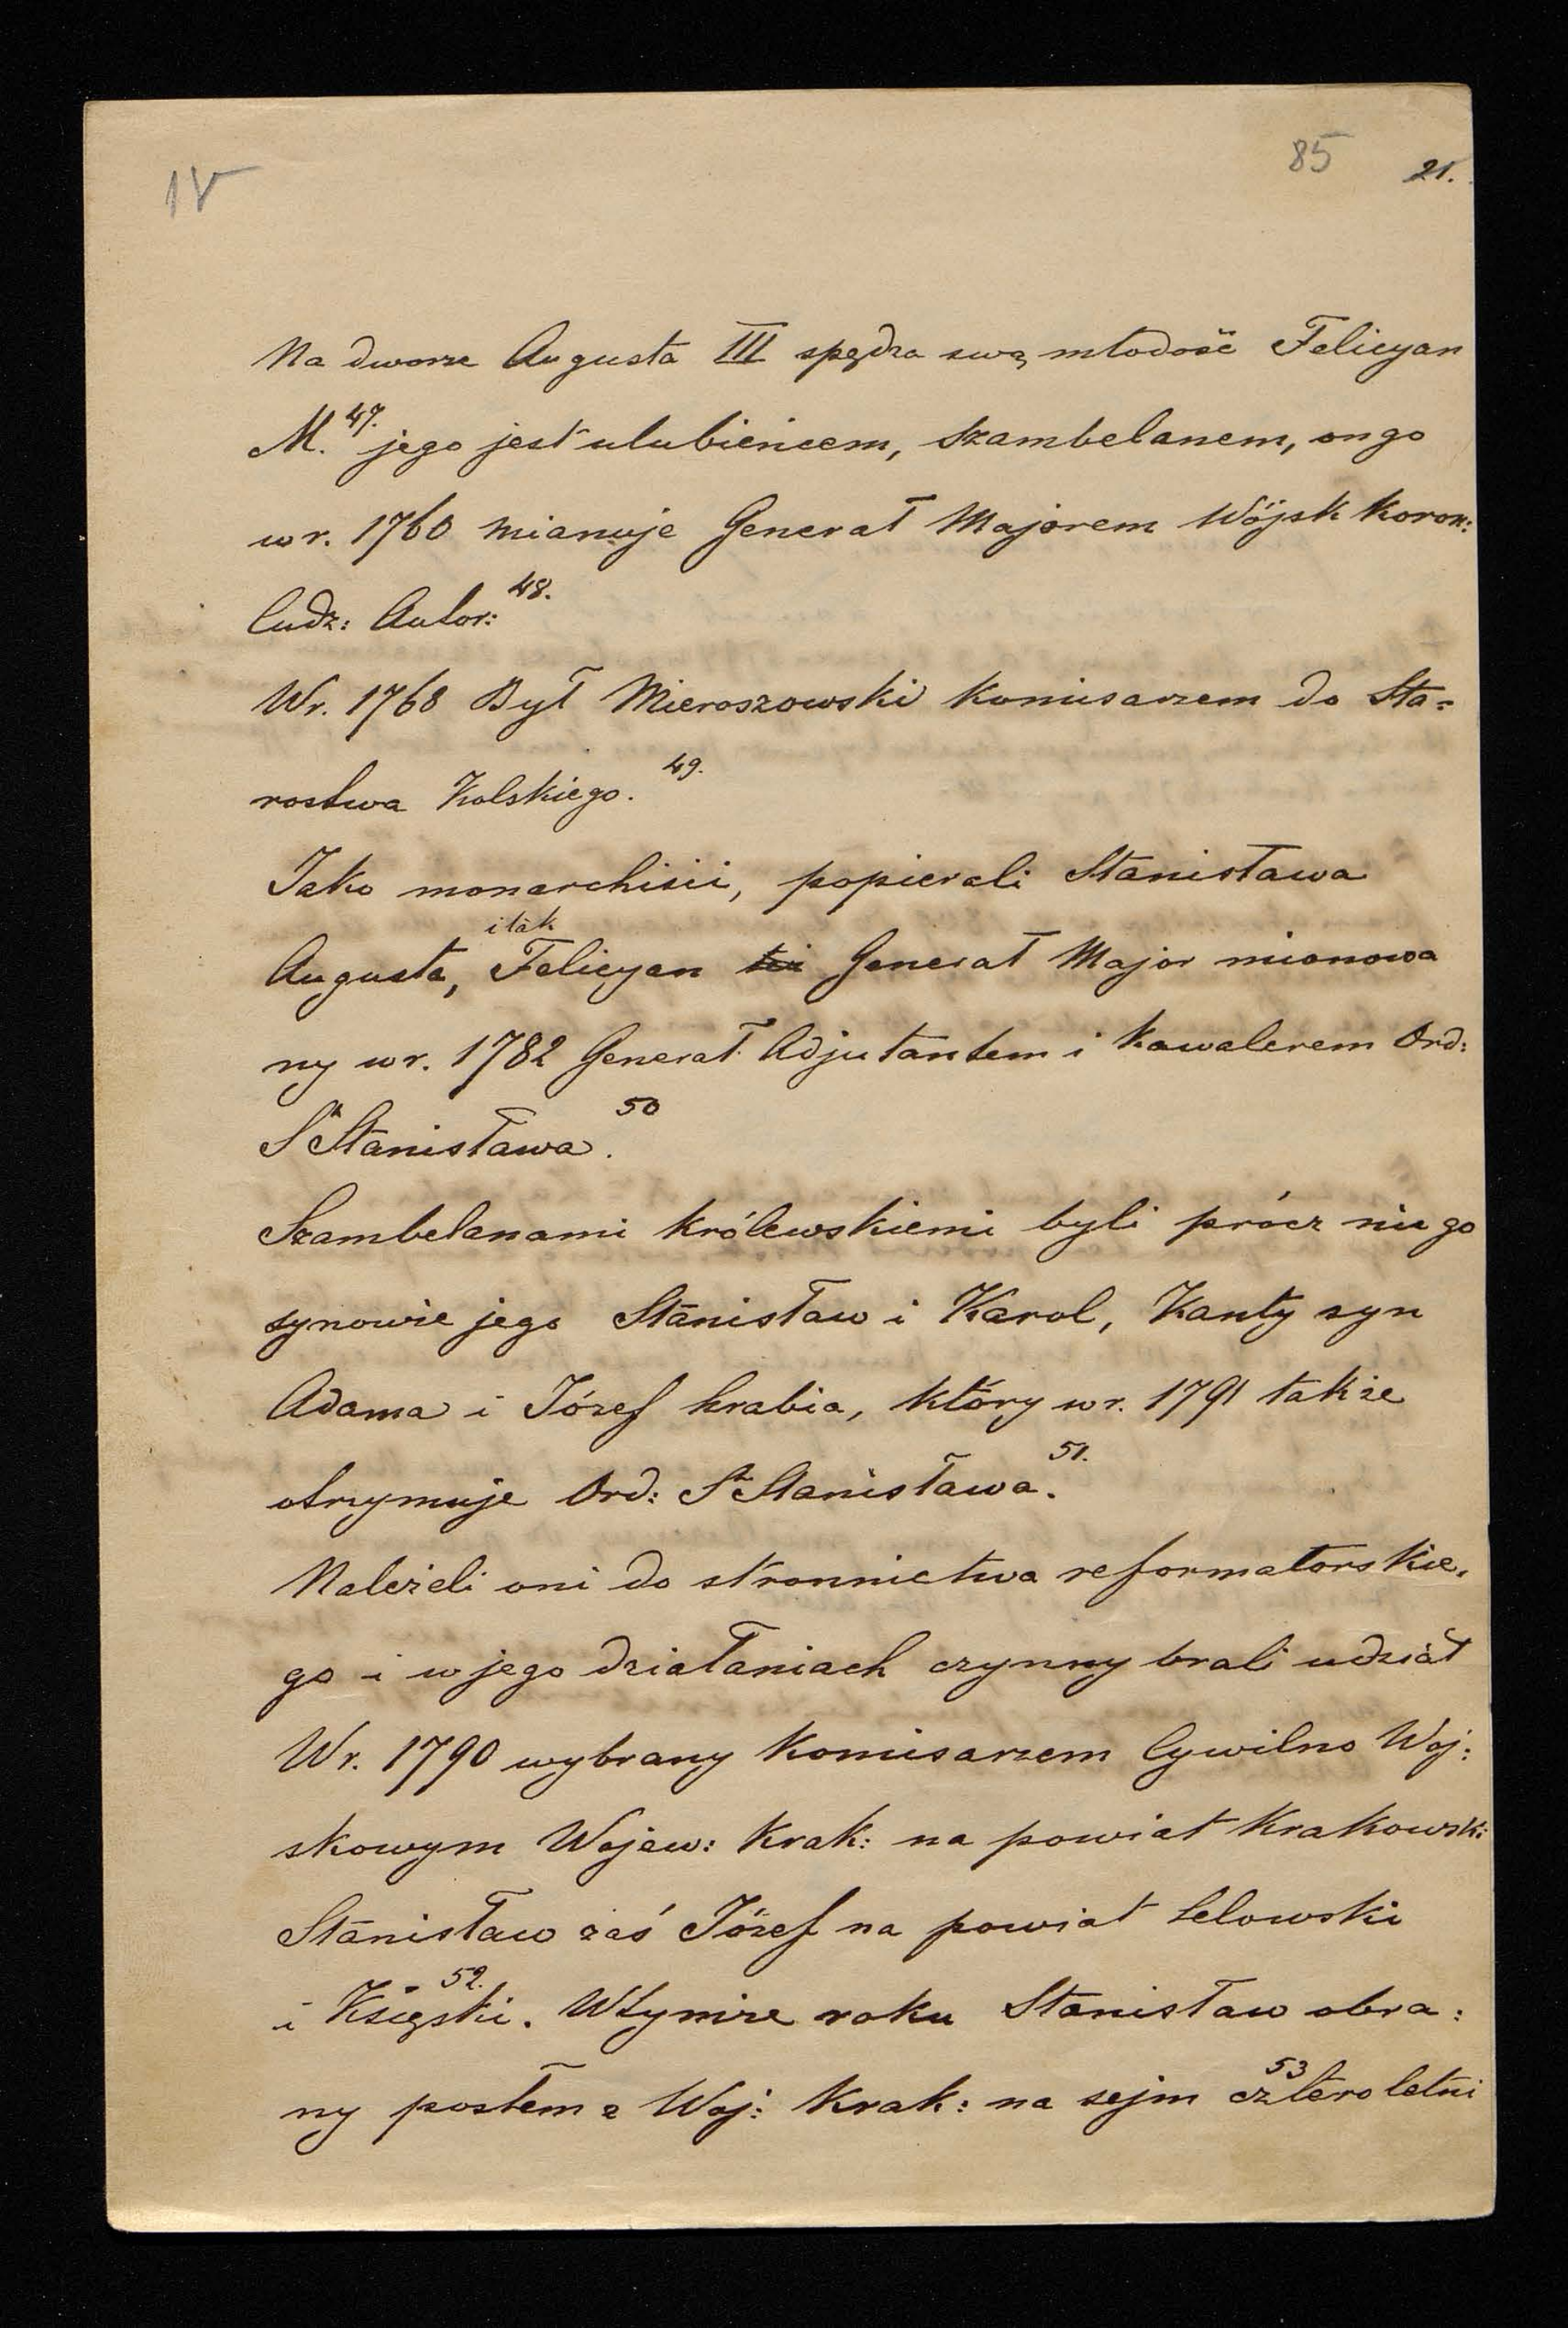 85 21.
Na dworze Augusta III spędza swą młodość Felicyan
M.47. jego jest ulubieńcem, szambelanem, on go
w r. 1760 mianuje Generał Majorem Wójsk Koron:
Cudz: Autor:48.
W r. 1768 Był Mieroszowski Komisarzem do Sta=
rostwa Kolskiego.49.
Jako monarchiści, popierali Stanisława
i tak
Augusta, Felicyan Generał Major mianowa
ny w r. 1782 Generał Adjutantem i Kawalerem Ord:
Sgo Stanisława.50
Szambelanami królewskiemi byli prócz niego
synowie jego Stanisław i Karol, Kanty syn
Adama i Józef hrabia, który w r. 1791 także
otrzymuje Ord: Sgo Stanisława.51.
Należeli oni do stronnictwa reformatorskie,
go i w jego działaniach czynny brali udział
W r. 1790 wybrany Komisarzem Cywilno Woj:
skowym Wojew: Krak: na powiat Krakowski
Stanisław zaś Józef na powiat Lelowski
i Ksiąski.52. W tymże roku Stanisław obra:
ny posłem z Woj: Krak: na sejm czteroletni53